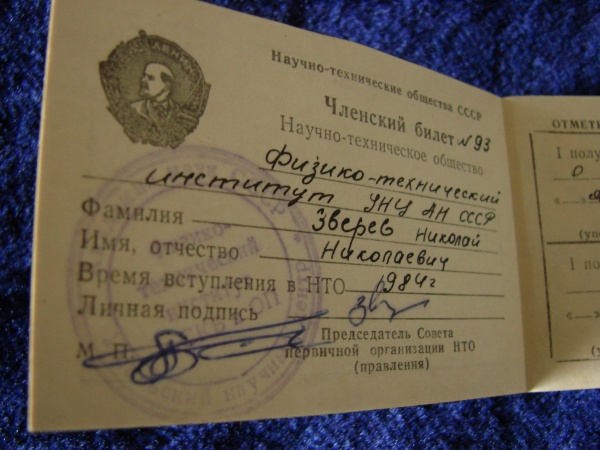 Научно-технические общества СССР
Членский билет № 93
Научно-техническое общество
физико-технический
институт УНЦ АН СССР
Фамилия Зверев Николай
Имя, отчество Николаевич
Время вступления в НТО 1984г
Личная подпись
М. П. Председатель Совета
первичной организации НТО
(правления)
ОТМЕТК
I полу
I по